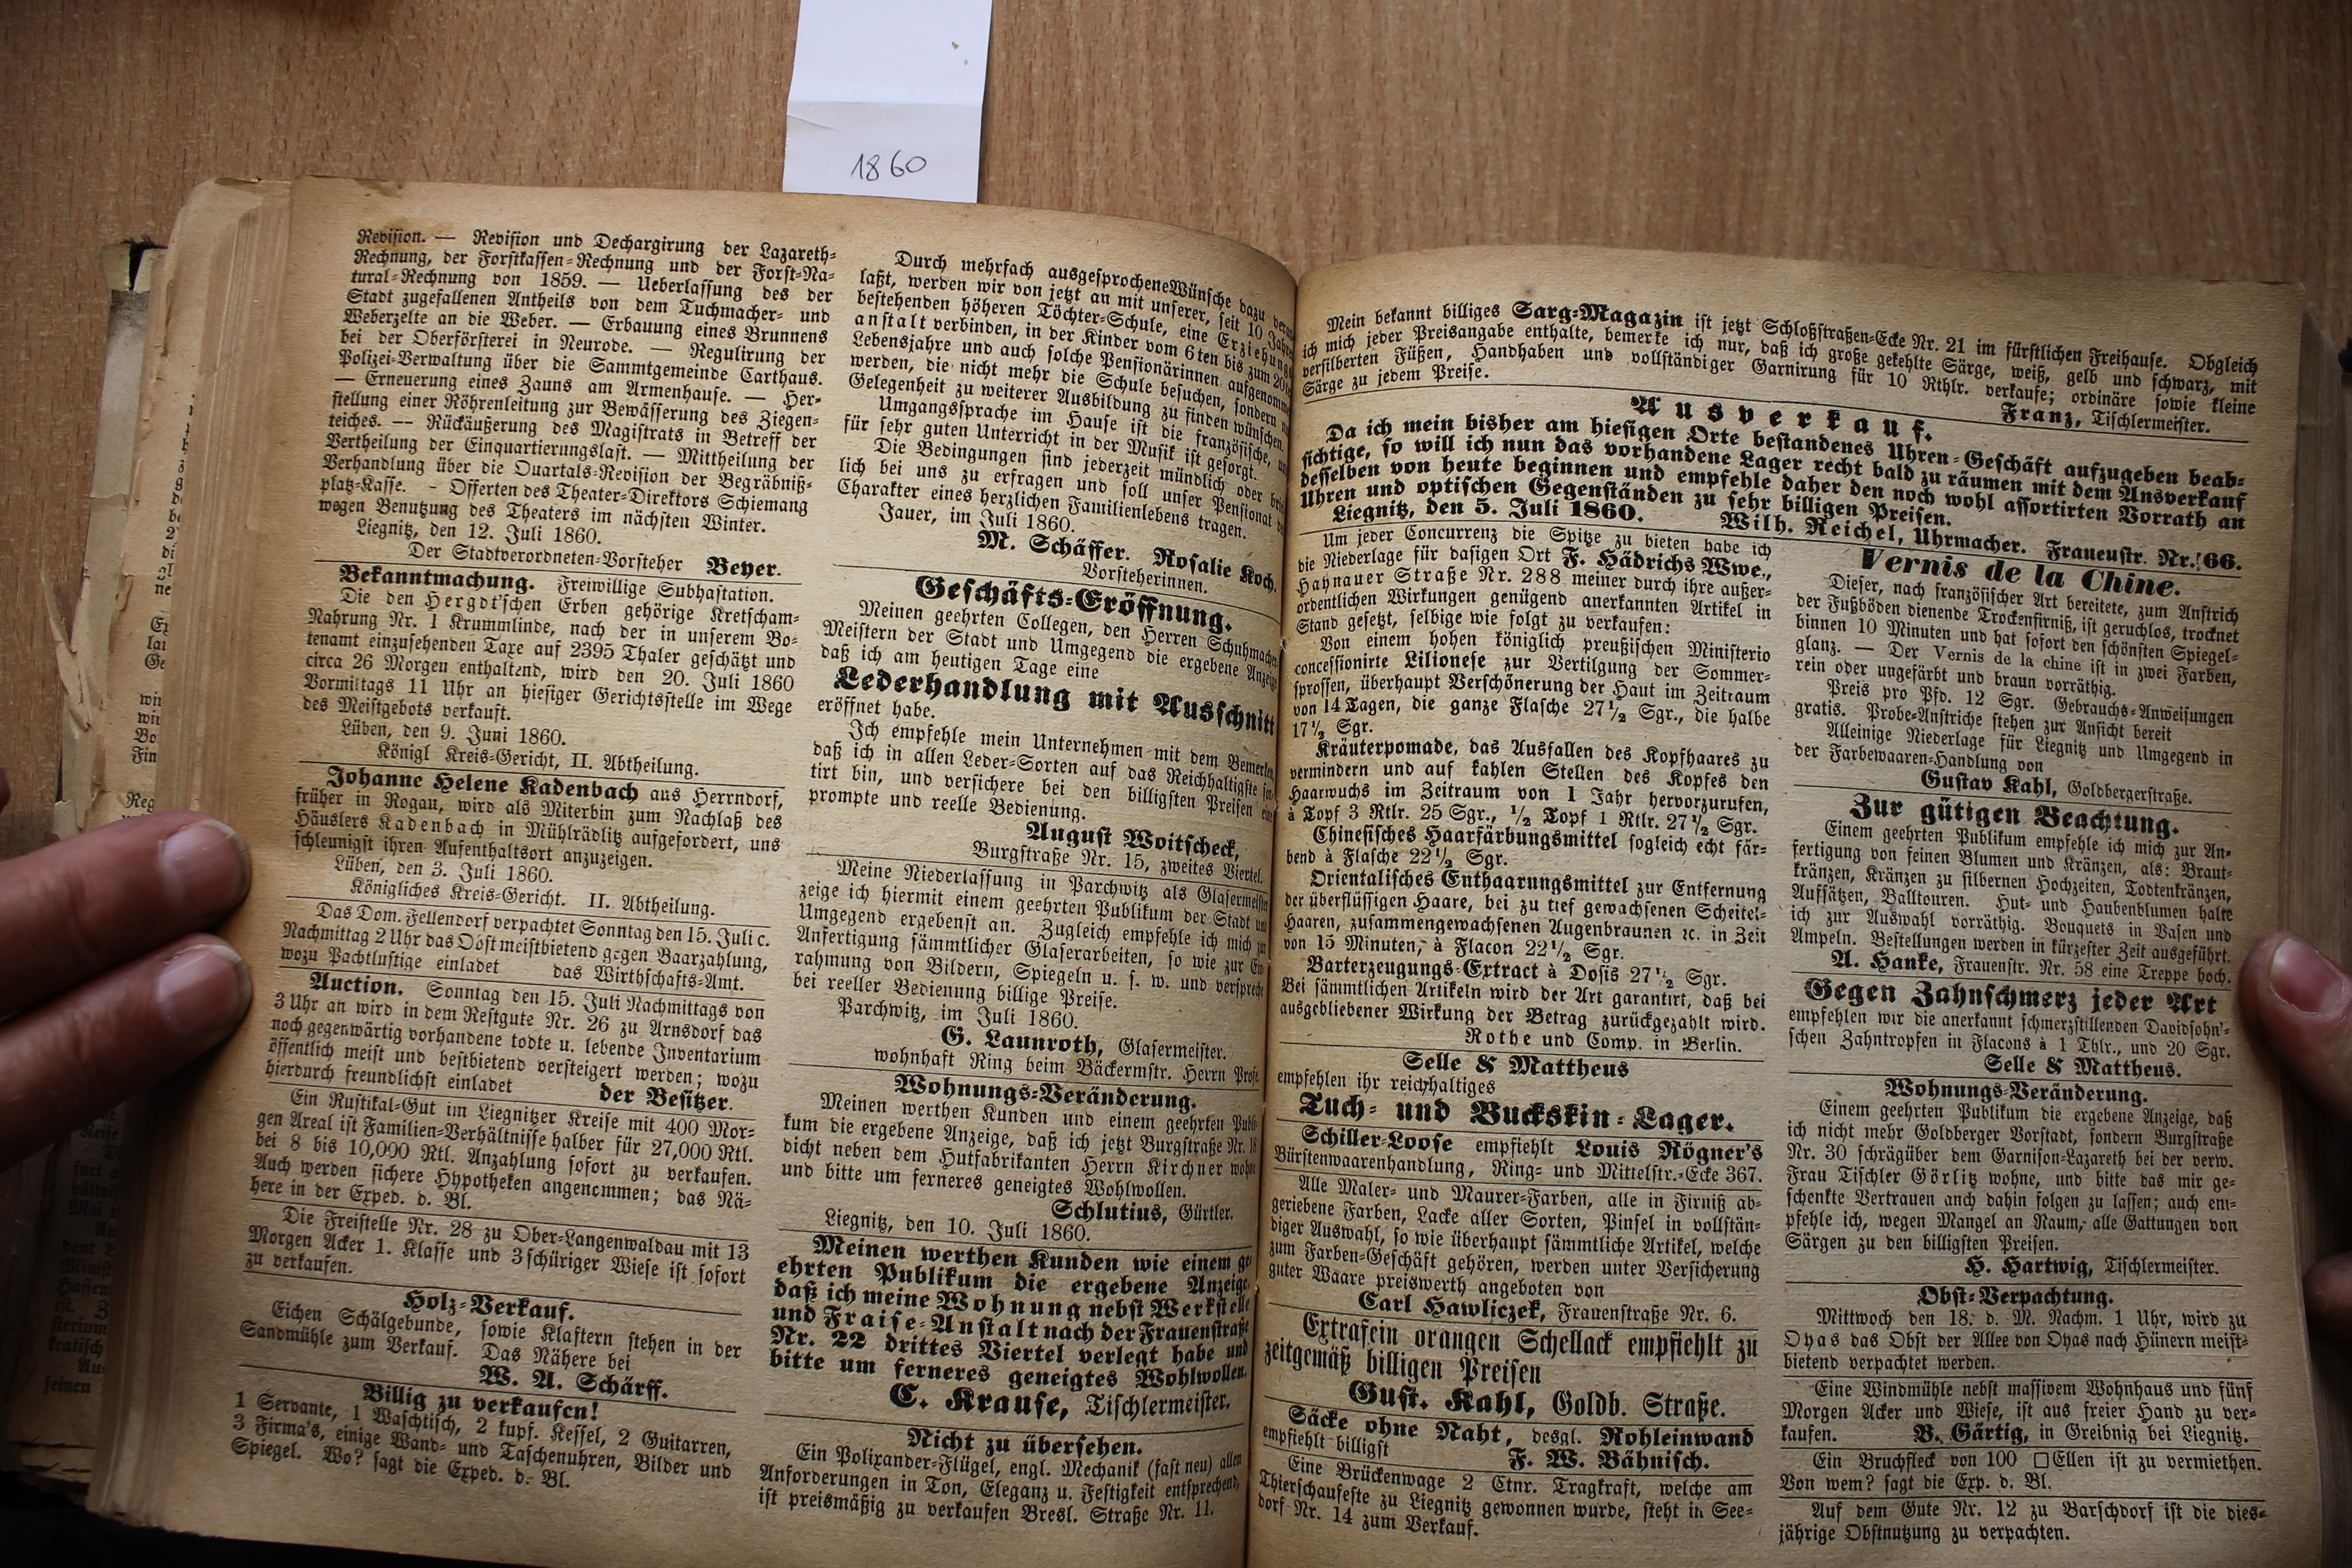 1860
Revision. — Revision und Dechargirung der Lazareth-
Rechnung, der Forstkassen-Rechnung und der Forst-Na-
tural-Rechnung von 1859. — Ueberlassung des der
Stadt zugefallenen Antheils von dem Tuchmacher- und
Weberzelte an die Weber. — Erbauung eines Brunnens
bei der Oberförsterei in Neurode. — Regulirung der
Polizei-Verwaltung über die Sammtgemeinde Carthaus.
— Erneuerung eines Zauns am Armenhause. — Her-
stellung einer Röhrenleitung zur Bewässerung des Ziegen-
teiches. — Rückäußerung des Magistrats in Betreff der
Vertheilung der Einquartierungslast. — Mittheilung der
Verhandlung über die Quartals-Revision der Begräbniß-
platz-Kasse. - Offerten des Theater-Direktors Schiemang
wegen Benutzung des Theaters im nächsten Winter.
Liegnitz, den 12. Juli 1860.
Der Stadtverordneten-Vorsteher Beyer.
Bekanntmachung. Freiwillige Subhastation.
Die den Hergdt'schen Erben gehörige Kretscham-
Nahrung Nr. 1 Krummlinde, nach der in unserem Bo-
tenamt einzusehenden Taxe auf 2395 Thaler geschätzt und
circa 26 Morgen enthaltend, wird den 20. Juli 1860
Vormittags 11 Uhr an hiesiger Gerichtsstelle im Wege
des Meistgebots verkauft.
Lüben, den 9. Juni 1860.
Königl Kreis-Gericht, II. Abtheilung.
Johanne Helene Kadenbach aus Herrndorf,
früher in Rogau, wird als Miterbin zum Nachlaß des
Häuslers Kadenbach in Mühlrädlitz aufgefordert, uns
schleunigst ihren Aufenthaltsort anzuzeigen.
Lüben, den 3. Juli 1860.
Königliches Kreis-Gericht. II. Abtheilung.
Das Dom. Fellendorf verpachtet Sonntag den 15. Juli c.
Nachmittag 2 Uhr das Obst meistbietend gegen Baarzahlung,
wozu Pachtlustige einladet das Wirthschafts-Amt.
Auction. Sonntag den 15. Juli Nachmittags von
3 Uhr an wird in dem Restgute Nr. 26 zu Arnsdorf das
noch gegenwärtig vorhandene todte u. lebende Inventarium
öffentlich meist und bestbietend versteigert werden; wozu
hierdurch freundlichst einladet der Besitzer.
Ein Rustikal-Gut im Liegnitzer Kreise mit 400 Mor-
gen Areal ist Familien-Verhältnisse halber für 27,000 Rtl.
bei 8 bis 10,000 Rtl. Anzahlung sofort zu verkaufen.
Auch werden sichere Hypotheken angenommen; das Nä-
here in der Exped. d. Bl.
Die Freistelle Nr. 28 zu Ober-Langenwaldau mit 13
Morgen Acker 1. Klasse und 3 schüriger Wiese ist sofort
zu verkaufen.
Holz-Verkauf.
Eichen Schälgebunde, sowie Klaftern stehen in der
Sandmühle zum Verkauf. Das Nähere bei
W. A. Schärff.
Billig zu verkaufen!
1 Servante, 1 Waschtisch, 2 kupf. Kessel, 2 Guitarren,
3 Firma's, einige Wand- und Taschenuhren, Bilder und
Spiegel. Wo? sagt die Exped. d. Bl.
Durch mehrfach ausgesprochene Wünsche dazu veran
laßt, werden wir von jetzt an mit unserer, seit 10 Jahren
bestehenden höheren Töchter-Schule, eine Erziehungs
anstalt verbinden, in der Kinder vom 6ten bis zum
Lebensjahre und auch solche Pensionärinnen aufgenomm
werden, die nicht mehr die Schule besuchen, sondern
Gelegenheit zu weiterer Ausbildung zu finden wünschen.
Umgangssprache im Hause ist die französische,
für sehr guten Unterricht in der Musik ist gesorgt.
Die Bedingungen sind jederzeit mündlich oder brief
lich bei uns zu erfragen und soll unser Pensionat
Charakter eines herzlichen Familienlebens tragen.
Jauer, im Juli 1860.
M. Schäffer. Rosalie Koch,
Vorsteherinnen.
Geschäfts-Eröffnung.
Meinen geehrten Collegen, den Herren Schuhmacher
Meistern der Stadt und Umgegend die ergebene Anzeige
daß ich am heutigen Tage eine
Lederhandlung mit Ausschnitt
eröffnet habe.
Ich empfehle mein Unternehmen mit dem Bemerken
daß ich in allen Leder-Sorten auf das Reichhaltigste
tirt bin, und versichere bei den billigsten Preisen
prompte und reelle Bedienung.
August Woitscheck,
Burgstraße Nr. 15, zweites Viertel.
Meine Niederlassung in Parchwitz als Glasermeister
zeige ich hiermit einem geehrten Publikum der Stadt und
Umgegend ergebenst an. Zugleich empfehle ich mich zur
Anfertigung sämmtlicher Glaserarbeiten, so wie zur Ein
rahmung von Bildern, Spiegeln u. s. w. und verspreche
bei reeller Bedienung billige Preise.
Parchwitz, im Juli 1860.
G. Launroth, Glasermeister.
wohnhaft Ring beim Bäckermstr. Herrn
Wohnungs-Veränderung.
Meinen werthen Kunden und einem geehrten Publi
kum die ergebene Anzeige, daß ich jetzt Burgstraße Nr.
dicht neben dem Hutfabrikanten Herrn Kirchner wohne
und bitte um ferneres geneigtes Wohlwollen.
Schlutius, Gürtler.
Liegnitz, den 10. Juli 1860.
Meinen werthen Kunden wie einem ge
ehrten Publikum die ergebene Anzeige,
daß ich meine Wohnung nebst Werkstelle
und Fraise-Anstalt nach der Frauenstraße
Nr. 22 drittes Viertel verlegt habe und
bitte um ferneres geneigtes Wohlwollen.
C. Krause, Tischlermeister.
Nicht zu übersehen.
Ein Polixander-Flügel, engl. Mechanik (fast neu) allen
Anforderungen in Ton, Eleganz u. Festigkeit entsprechend,
ist preismäßig zu verkaufen Bresl. Straße Nr. 11.
Mein bekannt billiges Sarg-Magazin ist jetzt Schloßstraßen-Ecke Nr. 21 im fürstlichen Freihause. Obgleich
ich mich jeder Preisangabe enthalte, bemerke ich nur, daß ich große gekehlte Särge, weiß, gelb und schwarz, mit
versilberten Füßen, Handhaben und vollständiger Garnirung für 10 Rthlr. verkaufe; ordinäre sowie kleine
Särge zu jedem Preise. Franz, Tischlermeister.
Ausverkauf.
Da ich mein bisher am hiesigen Orte bestandenes Uhren-Geschäft aufzugeben beab-
sichtige, so will ich nun das vorhandene Lager recht bald zu räumen mit dem Ausverkauf
desselben von heute beginnen und empfehle daher den noch wohl assortirten Vorrath an
Uhren und optischen Gegenständen zu sehr billigen Preisen.
Liegnitz, den 5. Juli 1860. Wilh. Reichel, Uhrmacher. Frauenstr. Nr. 66.
Um jeder Concurrenz die Spitze zu bieten habe ich
die Niederlage für dasigen Ort F. Hädrichs Wwe.,
Haynauer Straße Nr. 288 meiner durch ihre außer-
ordentlichen Wirkungen genügend anerkannten Artikel in
Stand gesetzt, selbige wie folgt zu verkaufen:
Von einem hohen königlich preußischen Ministerio
concessionirte Lilionese zur Vertilgung der Sommer-
sprossen, überhaupt Verschönerung der Haut im Zeitraum
von 14 Tagen, die ganze Flasche 27½ Sgr., die halbe
17½ Sgr.
Kräuterpomade, das Ausfallen des Kopfhaares zu
vermindern und auf kahlen Stellen des Kopfes den
Haarwuchs im Zeitraum von 1 Jahr hervorzurufen,
à Topf 3 Rtlr. 25 Sgr., ½ Topf 1 Rtlr. 27½ Sgr.
Chinesisches Haarfärbungsmittel sogleich echt fär-
bend à Flasche 22½ Sgr.
Orientalisches Enthaarungsmittel zur Entfernung
der überflüssigen Haare, bei zu tief gewachsenen Scheitel-
Haaren, zusammengewachsenen Augenbraunen ꝛc. in Zeit
von 15 Minuten, à Flacon 22½ Sgr.
Barterzeugungs-Extract à Dosis 27½ Sgr.
Bei sämmtlichen Artikeln wird der Art garantirt, daß bei
ausgebliebener Wirkung der Betrag zurückgezahlt wird.
Rothe und Comp. in Berlin.
Selle & Mattheus
empfehlen ihr reichhaltiges
Tuch- und Buckskin-Lager.
Schiller-Loose empfiehlt Louis Rögner's
Bürstenwaarenhandlung, Ring- und Mittelstr.-Ecke 367.
Alle Maler- und Maurer-Farben, alle in Firniß ab-
geriebene Farben, Lacke aller Sorten, Pinsel in vollstän-
diger Auswahl, so wie überhaupt sämmtliche Artikel, welche
zum Farben-Geschäft gehören, werden unter Versicherung
guter Waare preiswerth angeboten von
Carl Hawliczek, Frauenstraße Nr. 6.
Extrafein orangen Schellack empfiehlt zu
zeitgemäß billigen Preisen
Gust. Kahl, Goldb. Straße.
Säcke ohne Naht, desgl. Rohleinwand
empfiehlt billigst F. W. Bähnisch.
Eine Brückenwage 2 Ctnr. Tragkraft, welche am
Thierschaufeste zu Liegnitz gewonnen wurde, steht in See-
dorf Nr. 14 zum Verkauf.
Vernis de la Chine.
Dieser, nach französischer Art bereitete, zum Anstrich
der Fußböden dienende Trockenfirniß, ist geruchlos, trocknet
binnen 10 Minuten und hat sofort den schönsten Spiegel-
glanz. — Der Vernis de la chine ist in zwei Farben,
rein oder ungefärbt und braun vorräthig.
Preis pro Pfd. 12 Sgr. Gebrauchs-Anweisungen
gratis. Probe-Anstriche stehen zur Ansicht bereit
Alleinige Niederlage für Liegnitz und Umgegend in
der Farbewaaren-Handlung von
Gustav Kahl, Goldbergerstraße.
Zur gütigen Beachtung.
Einem geehrten Publikum empfehle ich mich zur An-
fertigung von feinen Blumen und Kränzen, als: Braut-
kränzen, Kränzen zu silbernen Hochzeiten, Todtenkränzen,
Aufsätzen, Balltouren. Hut- und Haubenblumen halte
ich zur Auswahl vorräthig. Bouquets in Vasen und
Ampeln. Bestellungen werden in kürzester Zeit ausgeführt.
A. Hanke, Frauenstr. Nr. 58 eine Treppe hoch.
Gegen Zahnschmerz jeder Art
empfehlen wir die anerkannt schmerzstillenden Davidsohn'-
schen Zahntropfen in Flacons à 1 Thlr., und 20 Sgr.
Selle & Mattheus.
Wohnungs-Veränderung.
Einem geehrten Publikum die ergebene Anzeige, daß
ich nicht mehr Goldberger Vorstadt, sondern Burgstraße
Nr. 30 schrägüber dem Garnison-Lazareth bei der verw.
Frau Tischler Görlitz wohne, und bitte das mir ge-
schenkte Vertrauen auch dahin folgen zu lassen; auch em-
pfehle ich, wegen Mangel an Raum, alle Gattungen von
Särgen zu den billigsten Preisen.
H. Hartwig, Tischlermeister.
Obst-Verpachtung.
Mittwoch den 18. d. M. Nachm. 1 Uhr, wird zu
Oyas das Obst der Allee von Oyas nach Hünern meist-
bietend verpachtet werden.
Eine Windmühle nebst massivem Wohnhaus und fünf
Morgen Acker und Wiese, ist aus freier Hand zu ver-
kaufen. B. Gärtig, in Greibnig bei Liegnitz.
Ein Bruchfleck von 100 □Ellen ist zu vermiethen.
Von wem? sagt die Exp. d. Bl.
Auf dem Gute Nr. 12 zu Barschdorf ist die dies-
jährige Obstnutzung zu verpachten.